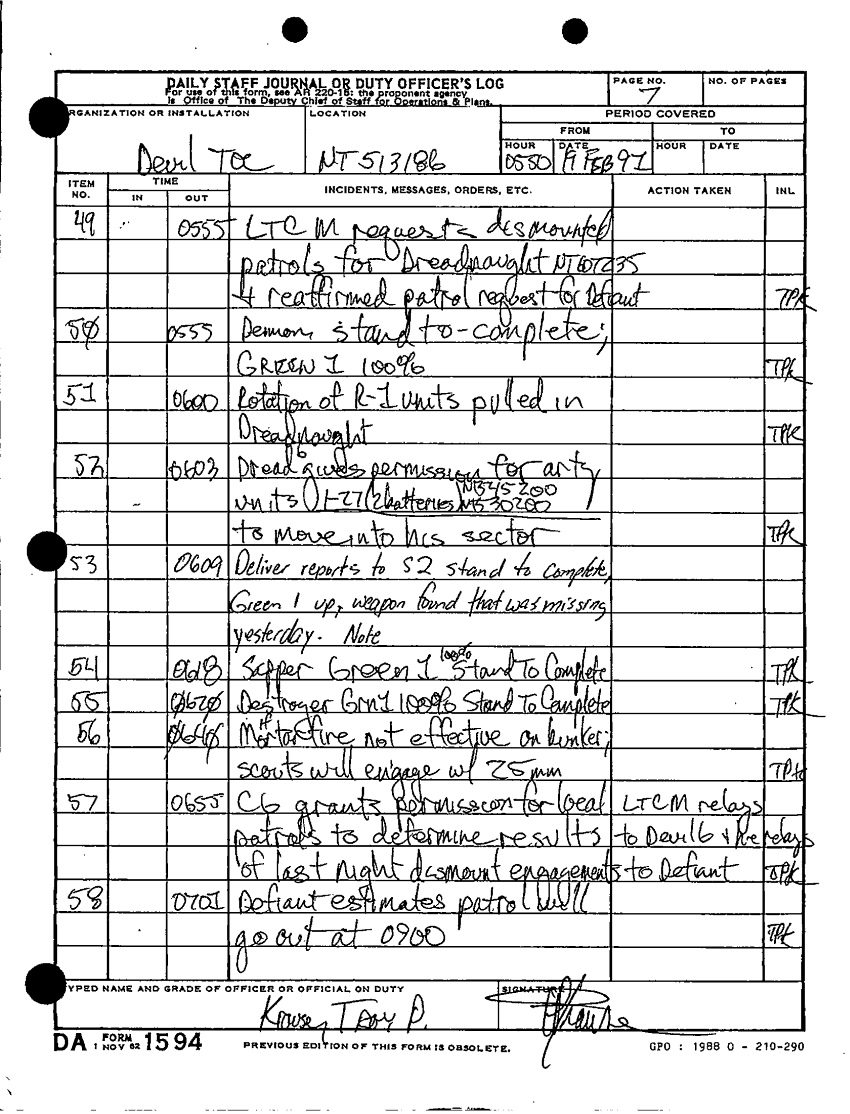 DAILY STAFF JOURNAL OR DUTY OFFICER'S LOG
For use of this form, see AR 220-15: the proponent agency
is Office of The Deputy Chief of Staff for Operations & Plans.
PAGE NO.
7
NO. OF PAGES
RGANIZATION OR INSTALLATION
Devil TOC
LOCATION
NT 513186
PERIOD COVERED
FROM
TO
HOUR
0550
DATE
19 FEB 91
HOUR
DATE
ITEM NO.
TIME
IN
OUT
INCIDENTS, MESSAGES, ORDERS, ETC.
ACTION TAKEN
INL
49 0555 LTC M requests dismounted
patrols for Dreadnaught NT607235
+ reaffirmed patrol request for Defiant TPK
50 0555 Demon, stand to-complete;
GREEN 1 100% TPK
51 0600 Rotation of R-1 units pulled in
Dreadnaught TPK
52 0603 Dread gives permission for arty
units 1-27 (2 batteries) NT545200 NT530200
to move into his sector TPK
53 0609 Deliver reports to S2 stand to complete,
Green 1 up, weapon found that was missing
yesterday. Note
54 0618 Sapper Green 1 100% Stand To Complete TPK
55 0620 Destroyer Grn1 100% Stand To Complete TPK
56 0640 Mortar fire not effective on bunker;
scouts will engage w/ 25mm TPK
57 0655 C6 grants permission for local LTCM relays
patrols to determine results to Devil 6 + he relays
of last night dismount engagements to Defiant TPK
58 0701 Defiant estimates patrol will
go out at 0900 TPK
TYPED NAME AND GRADE OF OFFICER OR OFFICIAL ON DUTY
Krause, Troy P.
SIGNATURE
DA FORM 1 NOV 62 1594
PREVIOUS EDITION OF THIS FORM IS OBSOLETE.
GPO : 1988 O - 210-290